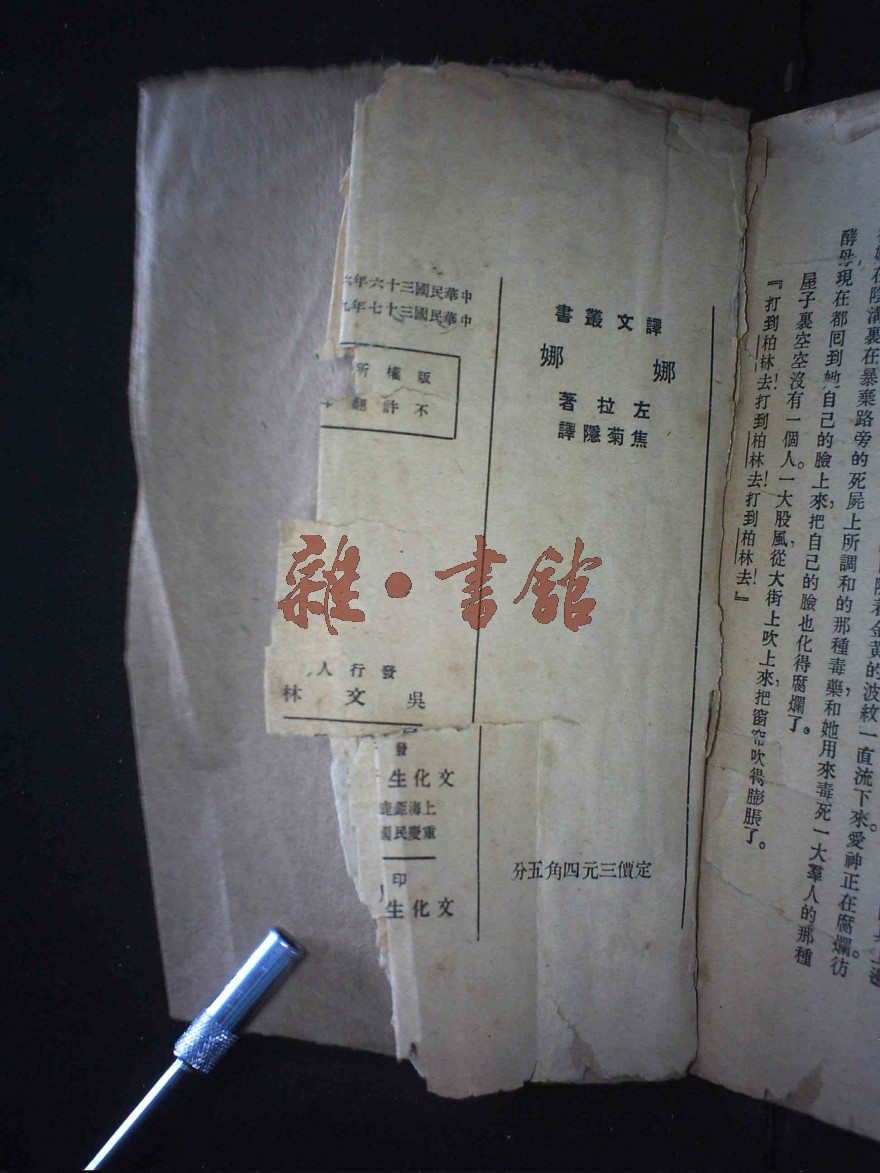 着金黃的波紋一直流下來。愛神正在腐爛。彷
在陰溝裏在暴棄路旁的死屍上所調和的那種毒藥，和她用來毒死一大羣人的那種
酵母，現在都囘到她自己的臉上來，把自己的臉也化得腐爛了。
屋子裏空空，沒有一個人。一大股風從大街上吹上來，把窗帘吹得膨脹了。
『打到柏林去！打到柏林去！打到柏林去！』
譯文叢書
娜娜
左拉著
焦菊隱譯
定價三元四角五分
中華民國三十六年
中華民國三十七年
版權所
不許翻
發行人
吳文林
發
文化生
上海鉅鹿
重慶民國
印
文化生
雜·書館